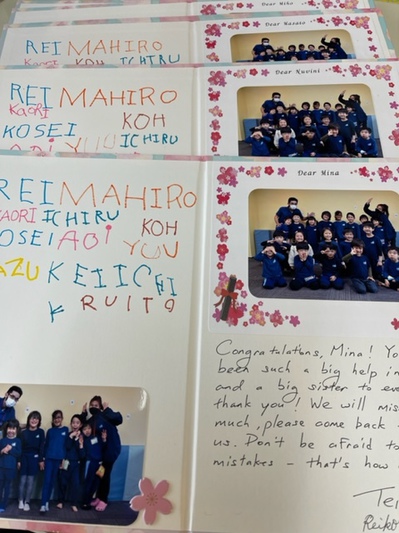 Dear Miko
Dear Masato
REI MAHIRO
KOU ICHIRU
Dear Nuvini
REI MAHIRO
KAORI
KOH
KOSEI
ICHIRU
AOI YUU
Dear Mina
REI MAHIRO
KAORI ICHIRU
KOH
KOSEI AOI
YOU
KAZU KEIICHI
K RUITO
Congratulations, Mina! You
been such a big help in
and a big sister to
thank you! We will miss
much, please come back
us. Don't be afraid to
mistakes – that's how
Reiko